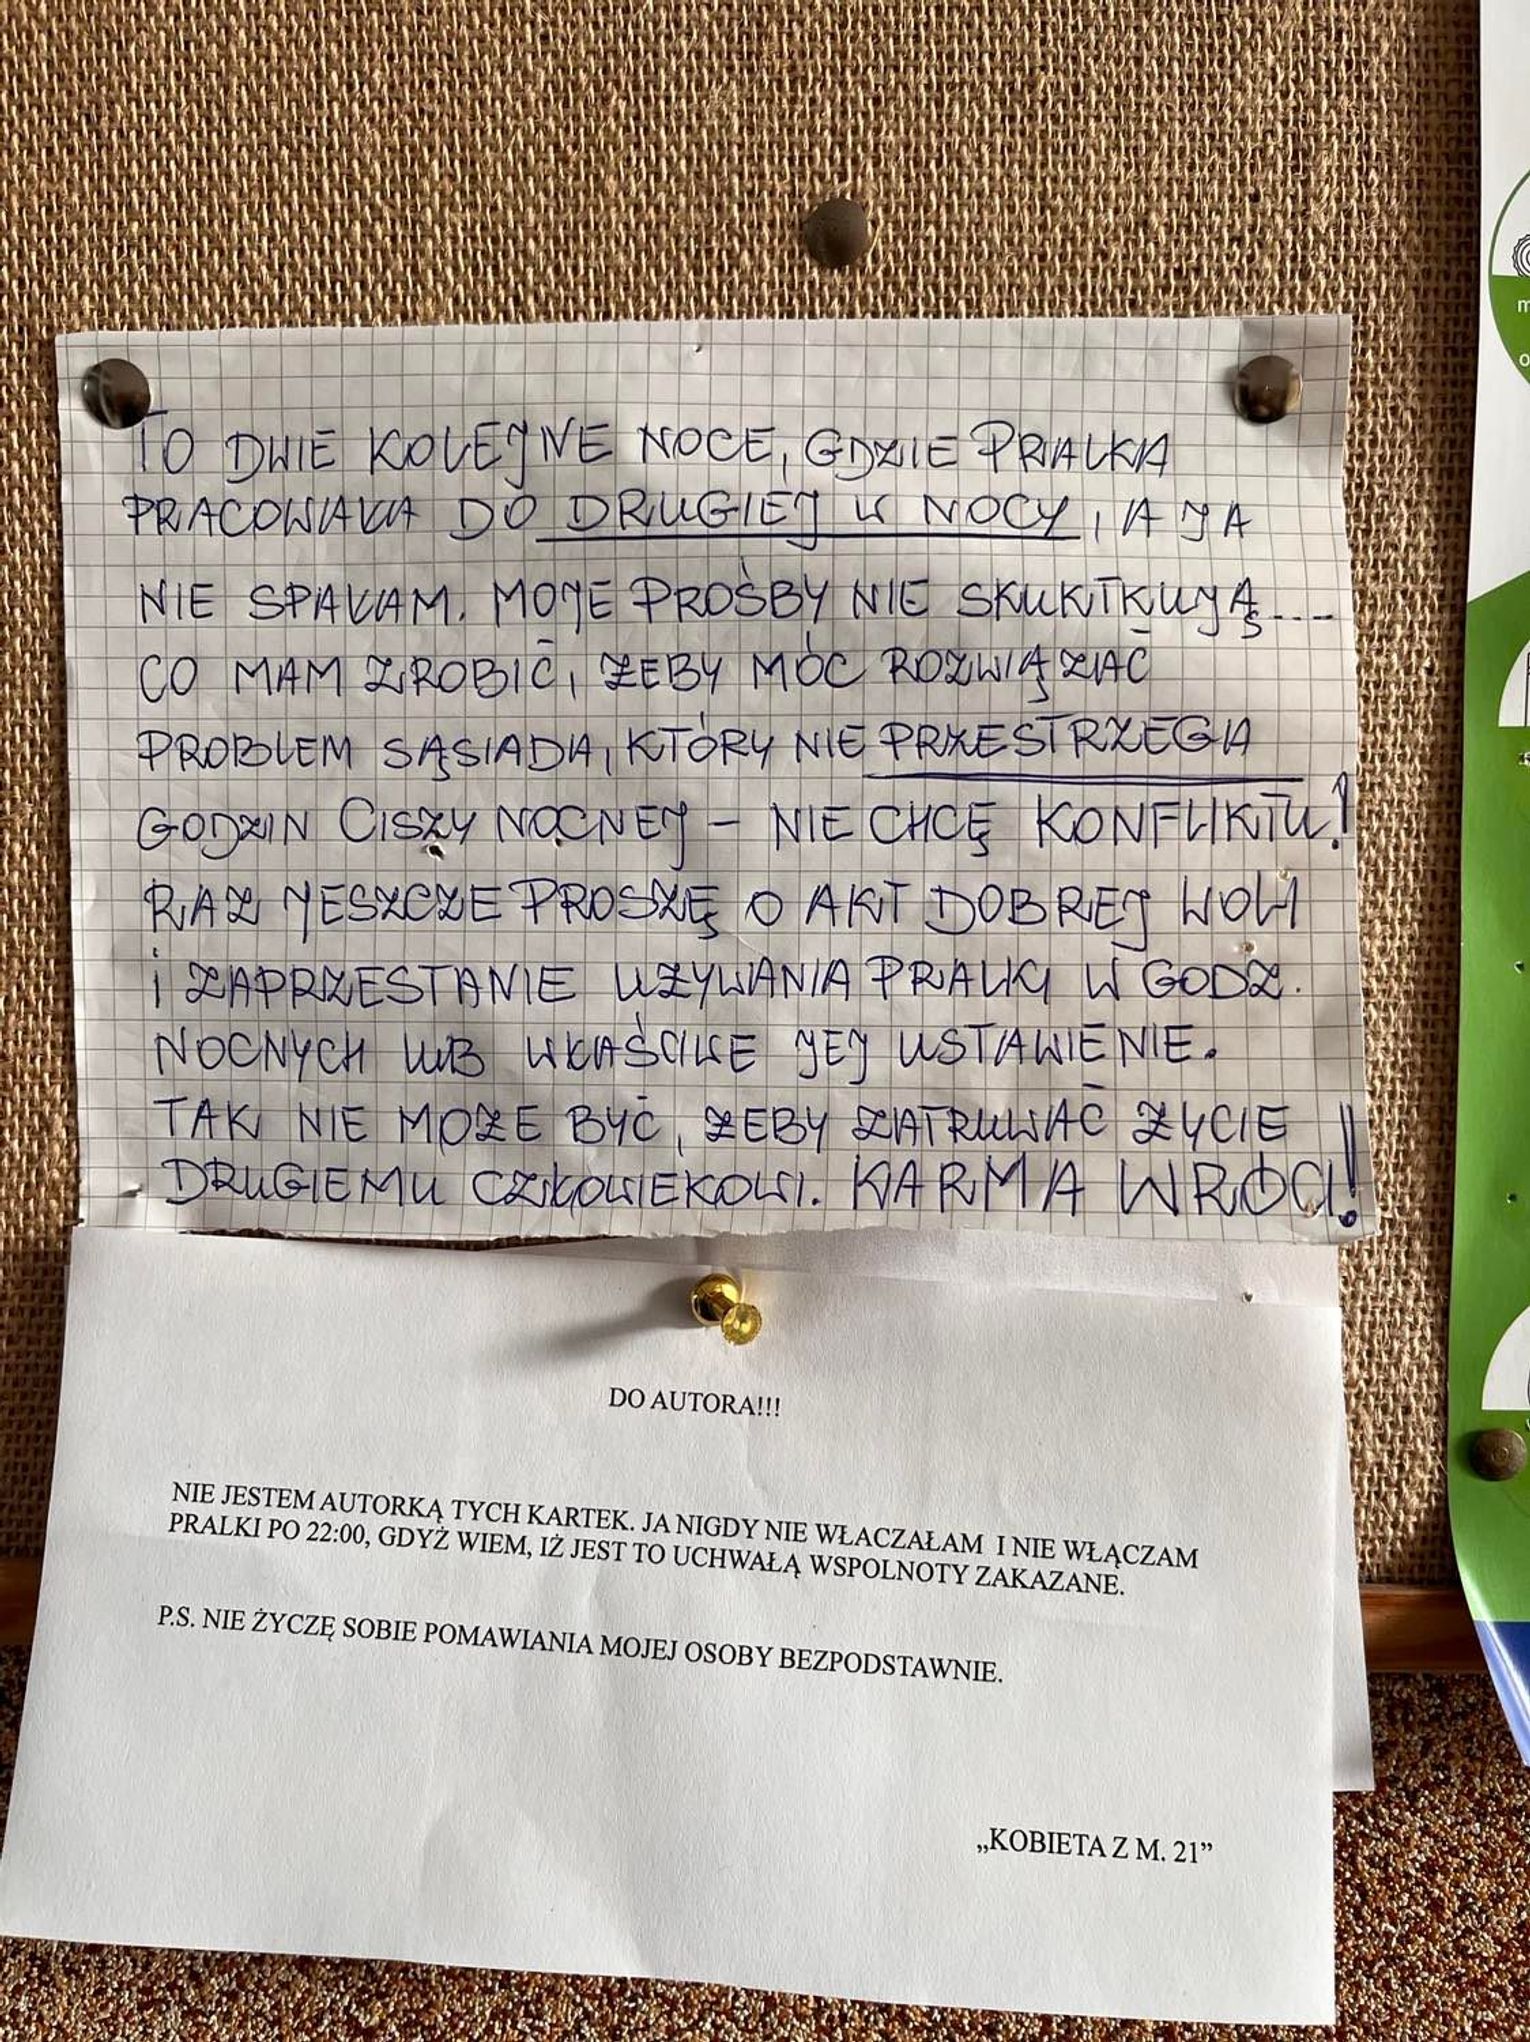 TO DWIE KOLEJNE NOCE, GDZIE PRALKA
PRACOWAŁA DO DRUGIEJ W NOCY, A JA
NIE SPAŁAM. MOJE PROŚBY NIE SKUKTKUJĄ....
CO MAM ZROBIĆ, ŻEBY MÓC ROZWIĄZAĆ
PROBLEM SĄSIADA, KTÓRY NIE PRZESTRZEGA
GODZIN CISZY NOCNEJ – NIE CHCĘ KONFLIKTU!
RAZ JESZCZE PROSZĘ O AKT DOBREJ WOLI
i ZAPRZESTANIE UŻYWANIA PRALKI W GODZ.
NOCNYCH LUB WŁAŚCIWE JEJ USTAWIENIE.
TAK NIE MOŻE BYĆ, ŻEBY ZATRUWAĆ ŻYCIE
DRUGIEMU CZŁOWIEKOWI. KARMA WRÓCI!!
DO AUTORA!!!
NIE JESTEM AUTORKĄ TYCH KARTEK. JA NIGDY NIE WŁACZAŁAM I NIE WŁĄCZAM
PRALKI PO 22:00, GDYŻ WIEM, IŻ JEST TO UCHWAŁĄ WSPOLNOTY ZAKAZANE.
P.S. NIE ŻYCZĘ SOBIE POMAWIANIA MOJEJ OSOBY BEZPODSTAWNIE.
„KOBIETA Z M. 21”